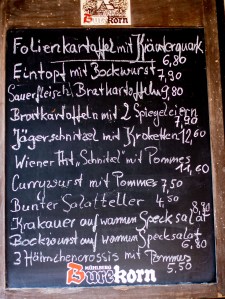 Burgkorn
Folienkartoffel mit Kräuterquark.
6,80
Eintopf mit Bockwurst
7,90
Sauerfleisch, Bratkartoffeln 9,80
Bratkartoffeln mit 2 Spiegeleiern
7,90
Jägerschnitzel mit Kroketten 12,60
Wiener Art "Schnitzel" mit Pommes
11,60
Currywurst mit Pommes 7,50
Bunter Salatteller 4,50
Krakauer auf warmen Specksalat
8,90
Bockwurst auf warmen Specksalat
6,80
3 Hähnchencrossis mit Pommes
5,50
MÜHLBERG
Burgkorn